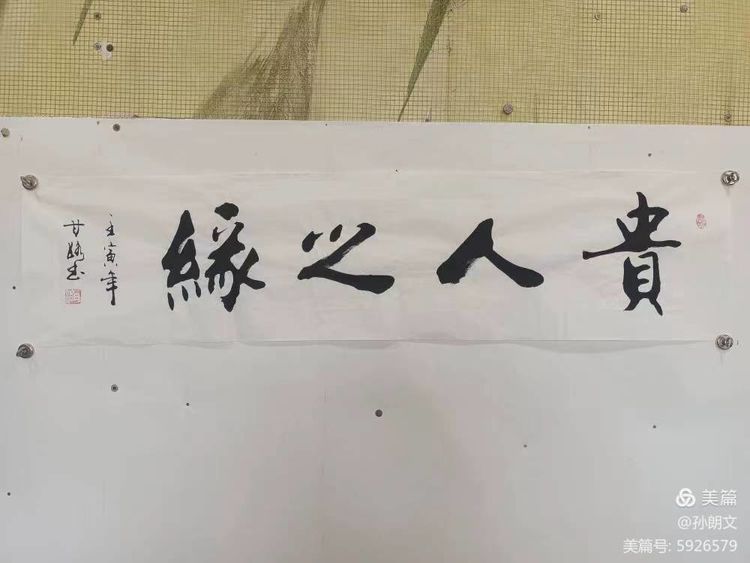 貴人之緣
壬寅年
美篇
@孙朗文
美篇号: 5926579